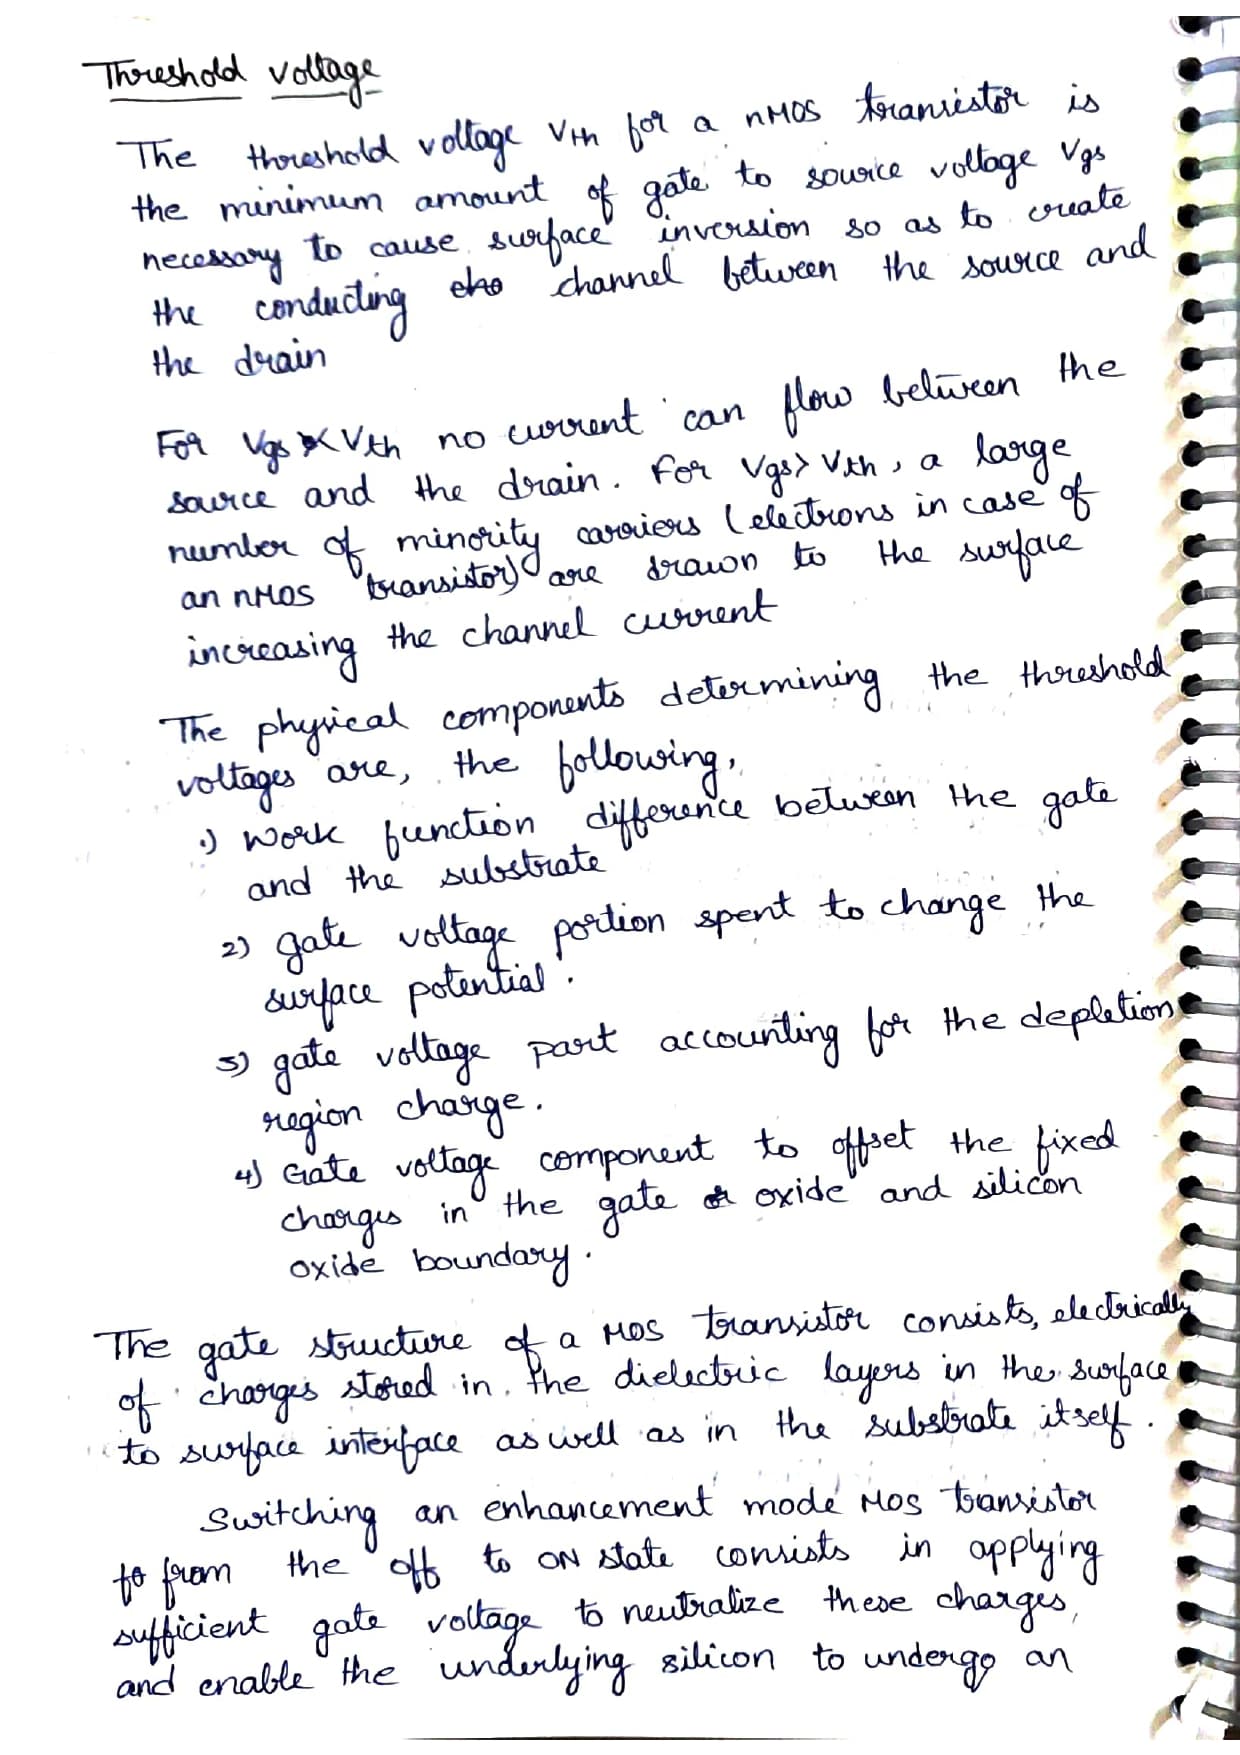 Threshold voltage
The threshold voltage Vth for a nMOS transistor is
the minimum amount of gate to source voltage Vgs
necessary to cause surface inversion so as to create
the conducting cha channel between the source and
the drain
For Vgs < Vth no current can flow between the
source and the drain. For Vgs> Vth, a large
number of minority carriers (electrons in case of
an nMOS transistor) are drawn to the surface
increasing the channel current
The physical components determining the threshold
voltages are, the following,
1) Work function difference between the gate
and the substrate
2) gate voltage portion spent to change the
surface potential.
3) gate voltage part accounting for the depletion
region charge.
4) Gate voltage component to offset the fixed
charges in the gate oxide and silicon
oxide boundary.
The gate structure of a MOS transistor consists, electrically
of charges stored in the dielectric layers in the surface
to surface interface as well as in the substrate itself.
Switching an enhancement mode MOS transistor
to from the off to ON state consists in applying
sufficient gate voltage to neutralize these charges,
and enable the underlying silicon to undergo an